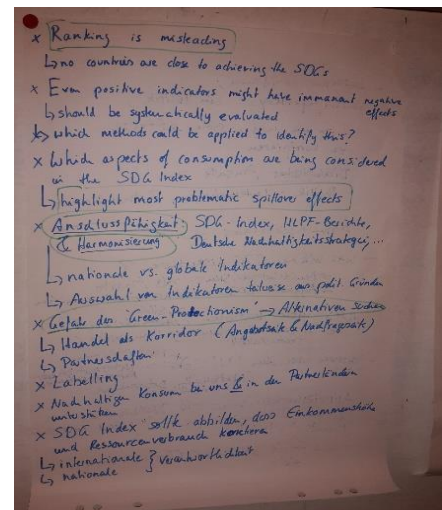 x Ranking is misleading
↳ no countries are close to achieving the SDGs
x Even positive indicators might have immanent negative effects
↳ should be systematically evaluated
↳ which methods could be applied to identify this?
x Which aspects of consumption are being considered
in the SDG Index
↳ highlight most problematic spillover effects
x Anschlussfähigkeit: SDG-Index, HLPF-Berichte,
& Harmonisierung Deutsche Nachhaltigkeitsstrategie, ...
↳ nationale vs. globale Indikatoren
↳ Auswahl von Indikatoren teilweise aus polit. Gründen
x Gefahr des "Green-Protectionism" → Alternativen suchen
↳ Handel als Korridor (Angebotsseite & Nachfrageseite)
↳ Partnerschaften
x Labelling
x Nachhaltigen Konsum bei uns & in den Partnerländern
unterstützen
x SDG Index sollte abbilden, dass Einkommenshöhe
und Ressourcenverbrauch
↳ internationale } Verantwortlichkeit
↳ nationale